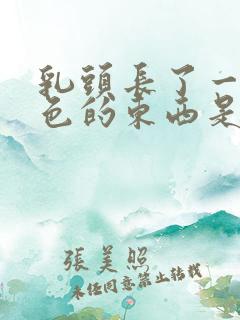 乳頭長了一
色的東西是
張美照
未經同意禁止轉載